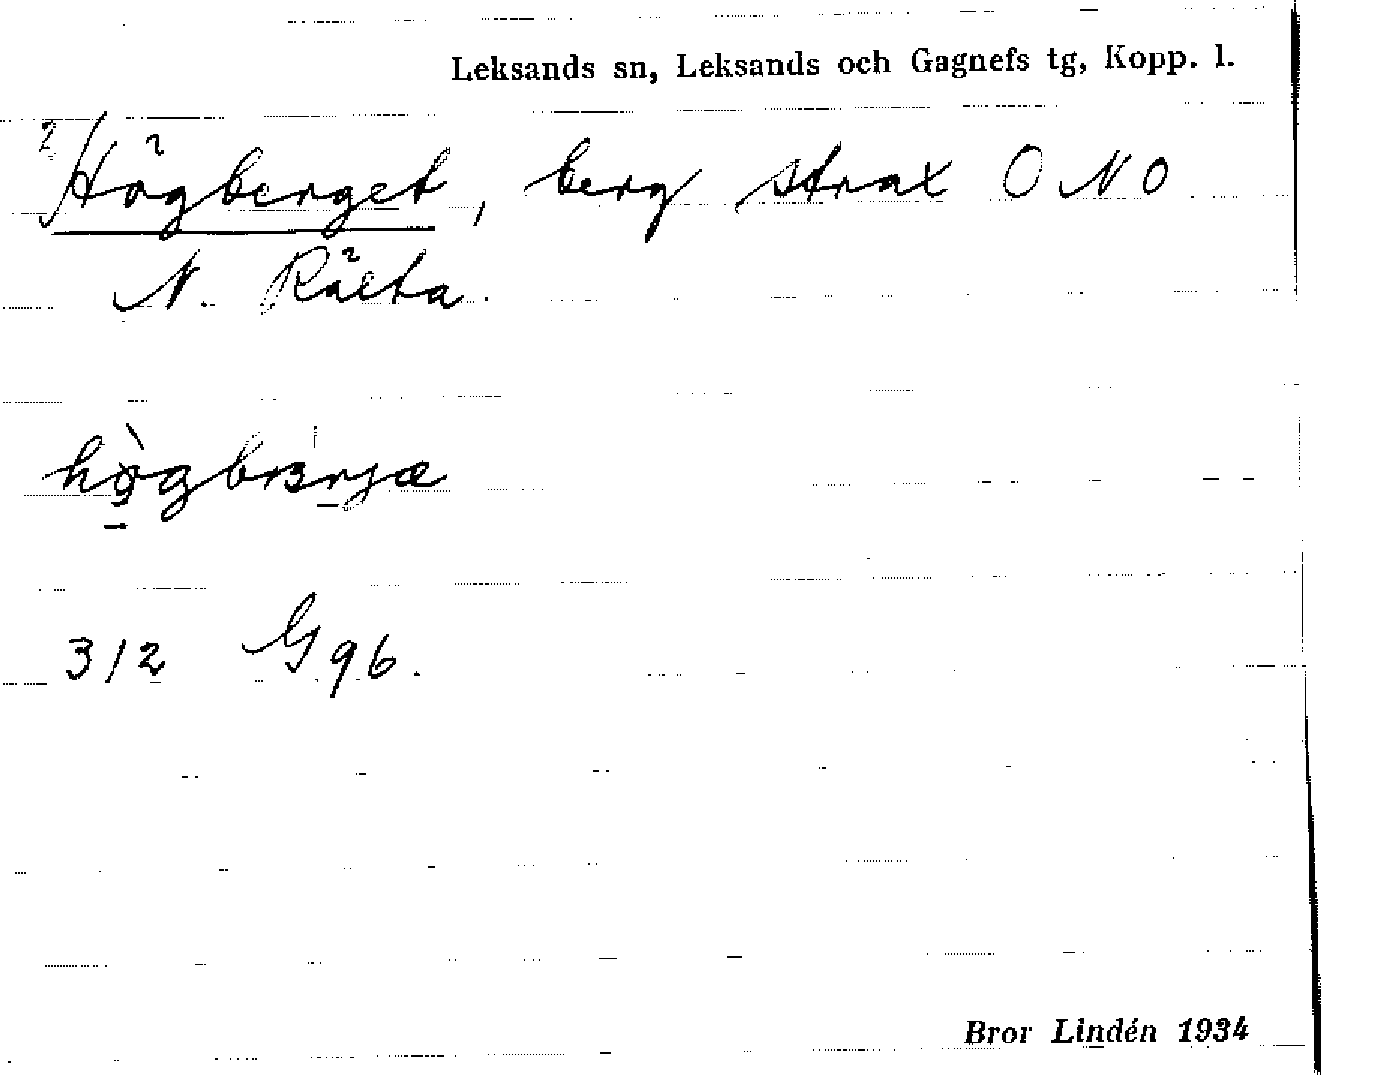 Leksands sn, Leksands och Gagnefs tg, Kopp. l.
2/ Högberget, berg strax ONO
N. Rälta.
312 G 96.
Bror Lindén 1934